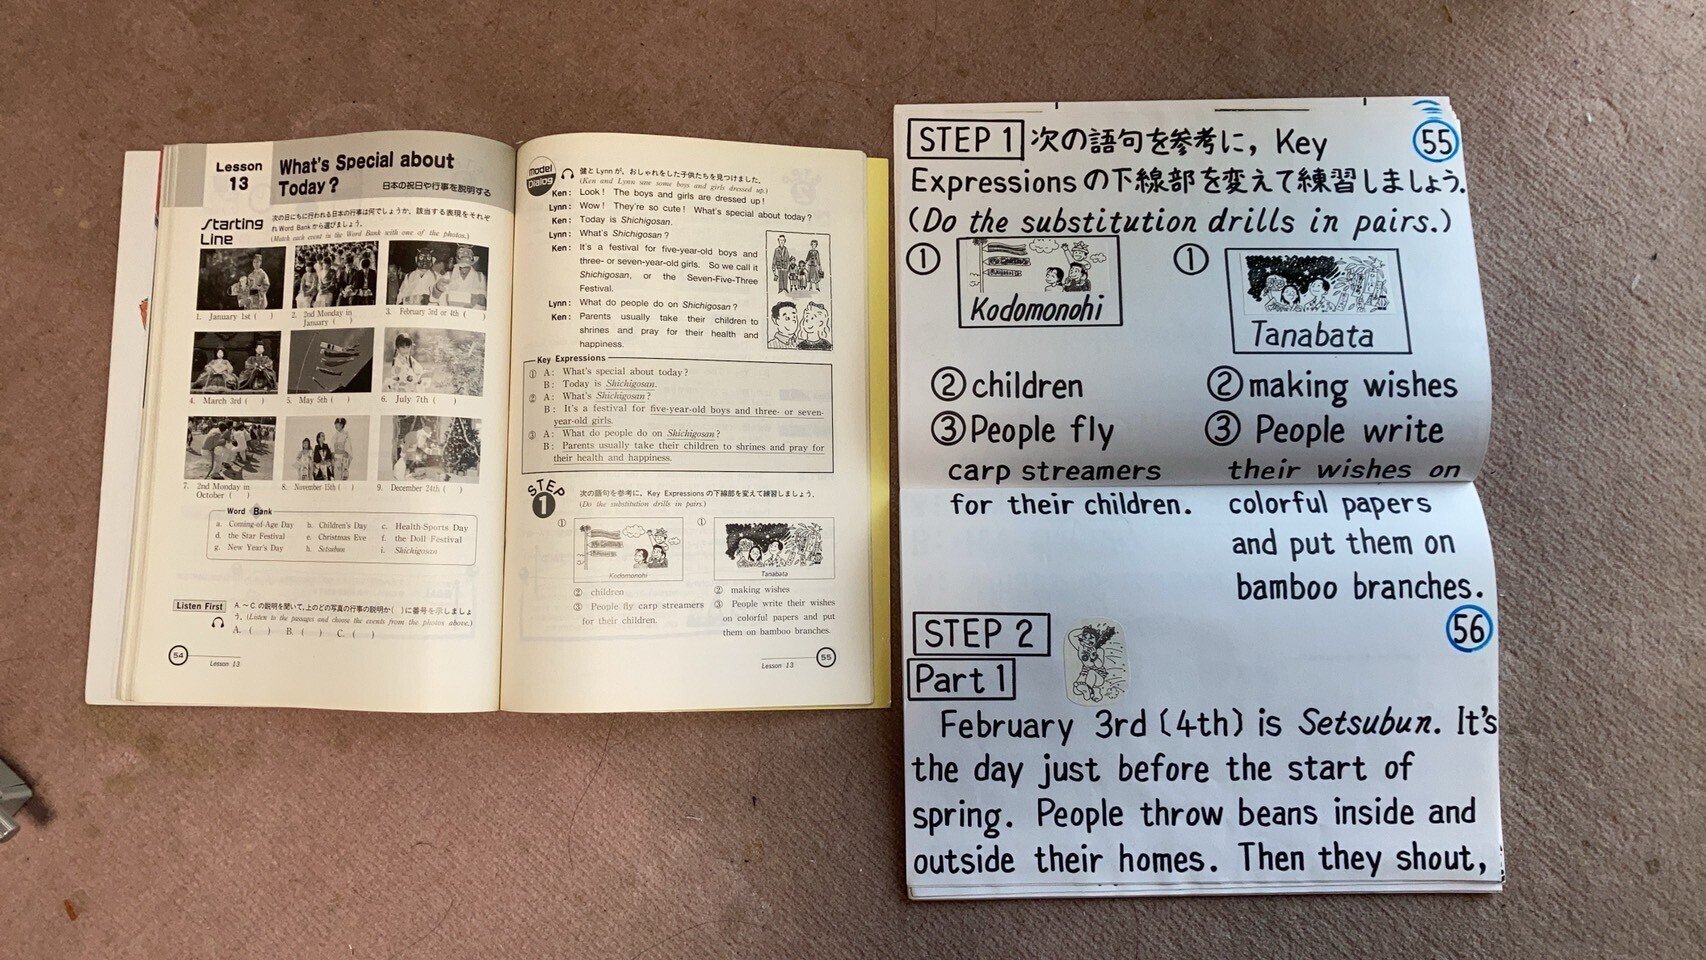 Lesson
13
What's Special about
Today?
日本の祝日や行事を説明する
Starting
Line
次の日にちに行われる日本の行事は何でしょうか。該当する表現をそれぞ
れWord Bankから選びましょう。
(Match each event in the Word Bank with one of the photos.)
1. January 1st ( )
2. 2nd Monday in
January ( )
3. February 3rd or 4th ( )
4. March 3rd ( )
5. May 5th ( )
6. July 7th ( )
7. 2nd Monday in
October ( )
8. November 15th ( )
9. December 24th ( )
Word Bank
a. Coming-of-Age Day b. Children's Day c. Health-Sports Day
d. the Star Festival e. Christmas Eve f. the Doll Festival
g. New Year's Day h. Setsubun i. Shichigosan
Listen First
A.～C.の説明を聞いて,上のどの写真の行事の説明か( )に番号を示しましょ
う。(Listen to the passages and choose the events from the photos above.)
A. ( ) B. ( ) C. ( )
54
Lesson 13
model
Dialog
健とLynnが、おしゃれをした子供たちを見つけました。
(Ken and Lynn saw some boys and girls dressed up.)
Ken: Look! The boys and girls are dressed up!
Lynn: Wow! They're so cute! What's special about today?
Ken: Today is Shichigosan.
Lynn: What's Shichigosan?
Ken: It's a festival for five-year-old boys and
three- or seven-year-old girls. So we call it
Shichigosan, or the Seven-Five-Three
Festival.
Lynn: What do people do on Shichigosan?
Ken: Parents usually take their children to
shrines and pray for their health and
happiness.
Key Expressions
① A: What's special about today?
B: Today is Shichigosan.
② A: What's Shichigosan?
B: It's a festival for five-year-old boys and three- or seven-
year-old girls.
③ A: What do people do on Shichigosan?
B: Parents usually take their children to shrines and pray for
their health and happiness.
STEP
1
次の語句を参考に, Key Expressionsの下線部を変えて練習しましょう。
(Do the substitution drills in pairs.)
①
Kodomonohi
② children
③ People fly carp streamers
for their children.
①
Tanabata
② making wishes
③ People write their wishes
on colorful papers and put
them on bamboo branches.
Lesson 13
55
STEP 1 次の語句を参考に, Key
55
Expressionsの下線部を変えて練習しましょう.
(Do the substitution drills in pairs.)
①
Kodomonohi
② children
③ People fly
carp streamers
for their children.
①
Tanabata
② making wishes
③ People write
their wishes on
colorful papers
and put them on
bamboo branches.
56
STEP 2
Part 1
February 3rd (4th) is Setsubun. It's
the day just before the start of
spring. People throw beans inside and
outside their homes. Then they shout,